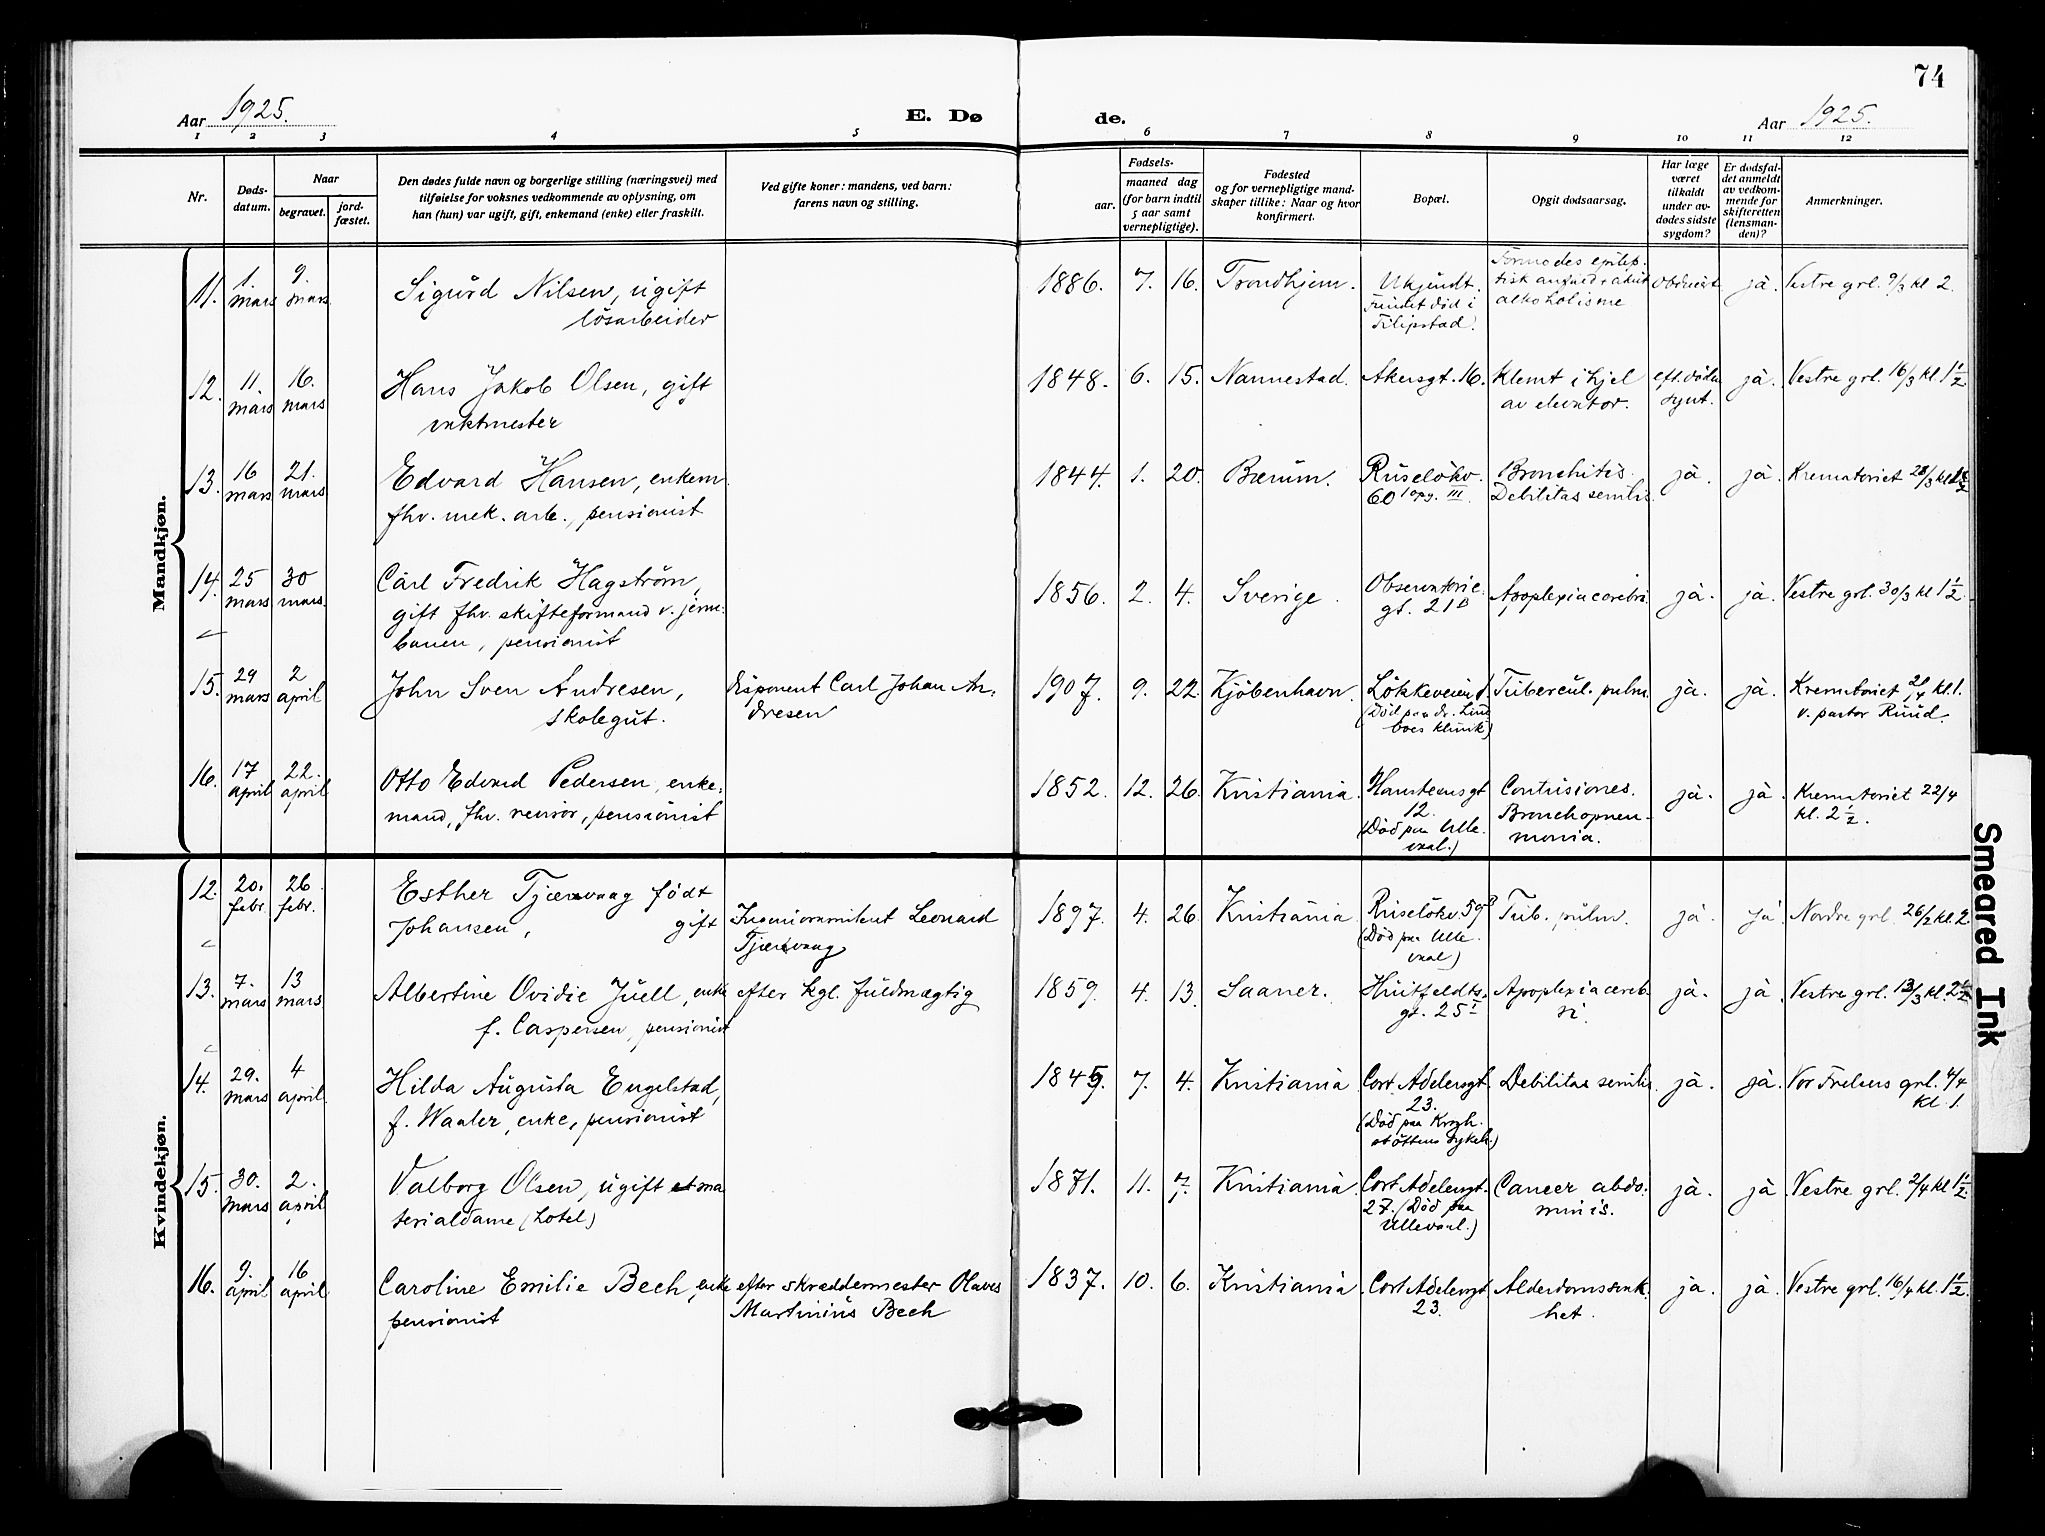 74
Aar 1925.
E. Dø de.
Aar 1925.
1 2 3 4 5 6 7 8 9 10 11 12
Nr.
Døds-
datum.
Naar
begravet.
jord-
fæstet.
Den dødes fulde navn og borgerlige stilling (næringsvei) med
tilføielse for voksnes vedkommende av oplysning, om
han (hun) var ugift, gift, enkemand (enke) eller fraskilt.
Ved gifte koner: mandens, ved barn:
farens navn og stilling.
Fødsels-
aar.
maaned dag
(for barn indtil
5 aar samt
vernepligtige).
Fødested
og for vernepligtige mand-
skaper tillike: Naar og hvor
konfirmert.
Bopæl.
Opgit dødsaarsag.
Har læge
været
tilkaldt
under av-
dødes sidste
sygdom?
Er dødsfal-
det anmeldt
av vedkom-
mende for
skifteretten
(lensman-
den)?
Anmerkninger.
Mandkjøn.
11. 1. mars 9. mars
Sigurd Nilsen, ugift
løsarbeider
1886. 7. 16. Trondhjem.
Ukjendt.
Fundet død i
Filipstad.
Formodes epilep-
tisk anfald + akut
alkoholisme
obducert ja. Vestre grl. 9/3 kl 2.
12. 11. mars 16. mars
Hans Jakob Olsen, gift
vaktmester
1848. 6. 15. Nannestad. Akersgt. 16.
Klemt ihjel
av elevator.
eft. døden
synt.
ja. Vestre grl. 16/3 kl. 1 1/2
13. 16 mars 21. mars
Edvard Hansen, enkem.
fhv. mek. arb., pensionist
1844. 1. 20. Bærum.
Ruseløkv.
60 opg. III.
Bronchitis.
Debilitas senilis.
ja. ja. Krematoriet 28/3 kl.
14. 25 mars 30 mars.
Carl Fredrik Hagstrøm,
gift fhv. skifteformand v. jern-
banen, pensionist
1856. 2. 4. Sverige.
Observatorie
gt. 21 B
Apoplexia cerebri.
ja. ja. Vestre grl. 30/3 kl 1 1/2.
15. 29 mars 2 april
John Sven Andresen,
skolegut.
disponent Carl Johan An-
dresen
1907. 9. 22. Kjøbenhavn.
Løkkeveien
(Død paa dr. Lind
boes klinik)
Tubercul. pulm.
ja. ja. Krematoriet 2/4 kl. 1.
v. pastor Ruud.
16. 17 april 22. april
Otto Edvard Pedersen, enke-
mand, fhv. revisor, pensionist
1852. 12. 26. Kristiania.
Hansteensgt
12.
(Død paa Ulle-
vaal.)
Contusiones.
Bronchopneu-
monia.
ja. ja. Krematoriet 22/4
kl. 2 1/2.
Kvindekjøn.
12. 20. febr. 26. febr.
Esther Tjærvaag født
Johansen, gift
Ingeniørassistent Leonard
Tjærvaag
1897. 4. 26 Kristiania
Ruseløkv. 59 B
(Død paa Ulle-
vaal)
Tub. pulm.
ja. ja. Nordre grl. 26/2 kl. 2.
13. 7. mars 13 mars
Albertine Ovidie Juell, enke
f. Caspersen, pensionist
efter kgl. fuldmægtig
1859. 4. 13. Saaner.
Huitfeldts.
gt. 25 I
Apoplexia cereb-
ri.
ja. ja. Vestre grl. 13/3 kl. 2 1/2
14. 29. mars 4 april
Hilda Augusta Engelstad,
f. Waaler, enke, pensionist
1845. 7. 4. Kristiania
Cort Adelersgt.
23.
(Død paa Krogh-
støttens sykeh.)
Debilitas senilis.
ja. ja. Vor Frelsers grl. 4/4
kl. 1.
15. 30. mars 2. april
Valborg Olsen, ugift ma
terialdame (hotel)
1871. 11. 7. Kristiania
Cort Adelersgt.
27. (Død paa
Ullevaal.)
Cancer abdo-
minis.
ja. ja. Vestre grl. 2/4 kl 1 1/2.
16. 9 april 16 april
Caroline Emilie Bech, enke
pensionist
efter skræddermester Olaves
Martinius Bech
1837. 10. 6. Kristiania.
Cort Adelersgt
23.
Alderdomssvak-
het.
ja. ja. Vestre grl. 16/4 kl. 1 1/2.
Smeared Ink